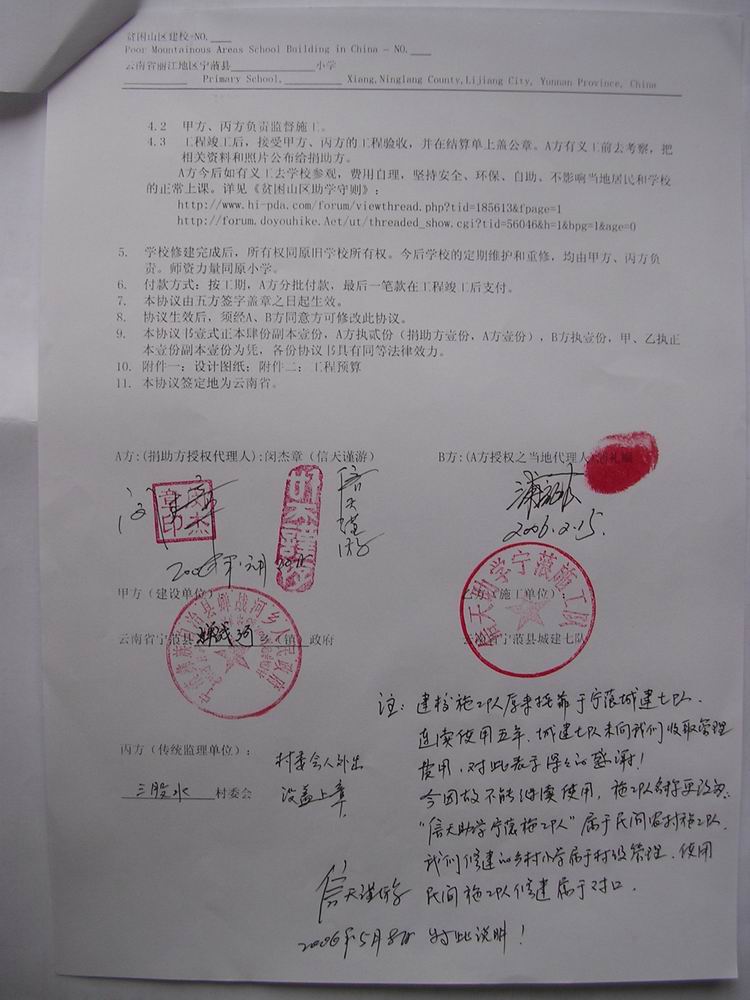 贫困山区建校-NO.
Poor Mountainous Areas School Building in China - NO.
云南省丽江地区宁蒗县 小学
Primary School, Xiang,Ninglang County,Lijiang City, Yunnan Province, China
4.2 甲方、丙方负责监督施工。
4.3 工程竣工后，接受甲方、丙方的工程验收，并在结算单上盖公章。A方有义工前去考察，把
相关资料和照片公布给捐助方。
A方今后如有义工去学校参观，费用自理，坚持安全、环保、自助、不影响当地居民和学校
的正常上课。详见《贫困山区助学守则》：
http://www.hi-pda.com/forum/viewthread.php?tid=185613&fpage=1
http://forum.doyouhike.Aet/ut/threaded_show.cgi?tid=56046&h=1&bpg=1&age=0
5. 学校修建完成后，所有权同原旧学校所有权。今后学校的定期维护和重修，均由甲方、丙方负
责。师资力量同原小学。
6. 付款方式：按工期，A方分批付款，最后一笔款在工程竣工后支付。
7. 本协议由五方签字盖章之日起生效。
8. 协议生效后，须经A、B方同意方可修改此协议。
9. 本协议书壹式正本肆份副本壹份，A方执贰份（捐助方壹份，A方壹份），B方执壹份，甲、乙执正
本壹份副本壹份为凭，各份协议书具有同等法律效力。
10. 附件一：设计图纸；附件二：工程预算
11. 本协议签定地为云南省。
A方:(捐助方授权代理人):闵杰章（信天谨游） B方:(A方授权之当地代理人
信天谨游
2006.2.15.
甲方（建设单位） 施工单位）
信天助学宁蒗施工队
云南省宁蒗县蝉战河乡（镇）政府 宁蒗县城建七队
注：建校施工队原来挂靠于宁蒗城建七队，
连续使用五年，城建七队未向我们收取管理
费用，对此表示深深的感谢！
今因故不能继续使用，施工队名称更改为：
“信天助学宁蒗施工队”属于民间农村施工队，
我们修建的乡村小学属于村级管理，使用
民间施工队修建属于对口。
丙方（传统监理单位）：
三股水 村委会
村委会人外出
没盖上章
信天谨游
2006年5月8日 特此说明！